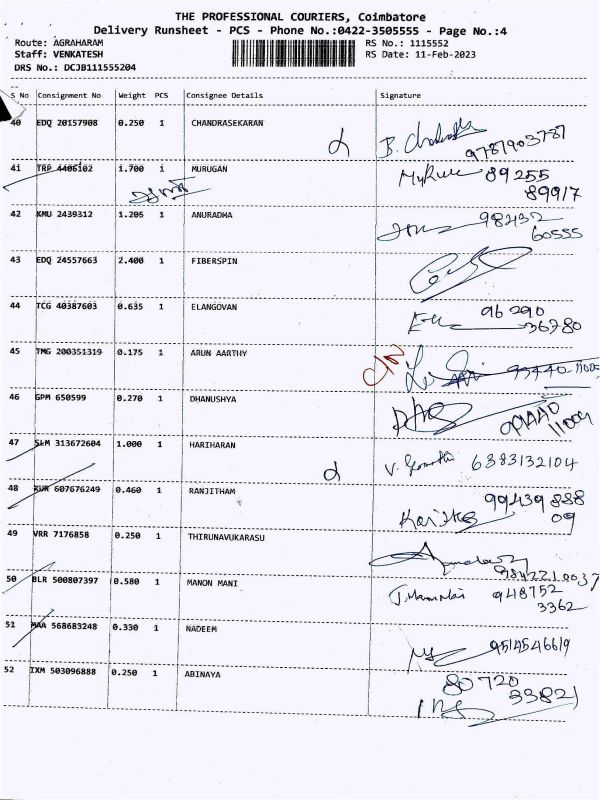 THE PROFESSIONAL COURIERS, Coimbatore
Delivery Runsheet - PCS - Phone No.:0422-3505555 - Page No.:4
Route: AGRAHARAM RS No.: 1115552
Staff: VENKATESH RS Date: 11-Feb-2023
DRS No.: DCJB111555204
S No Consignment No Weight PCS Consignee Details Signature
40 EDQ 20157908 0.250 1 CHANDRASEKARAN
9787903787
41 TRP 4406102 1.700 1 MURUGAN 89255
89917
42 KMU 2439312 1.205 1 ANURADHA 98432
60555
43 EDQ 24557663 2.400 1 FIBERSPIN
44 TCG 40387603 0.635 1 ELANGOVAN 96290
36780
45 TMG 200351319 0.175 1 ARUN AARTHY
46 GPM 650599 0.270 1 DHANUSHYA
47 SLM 313672604 1.000 1 HARIHARAN
6383132104
48 KUR 607676249 0.460 1 RANJITHAM 99439 888
09
49 VRR 7176858 0.250 1 THIRUNAVUKARASU
9842210037
50 BLR 500807397 0.580 1 MANON MANI 948752
3362
51 MAA 568683248 0.330 1 NADEEM 9514546619
52 IXM 503096888 0.250 1 ABINAYA 80720
33821